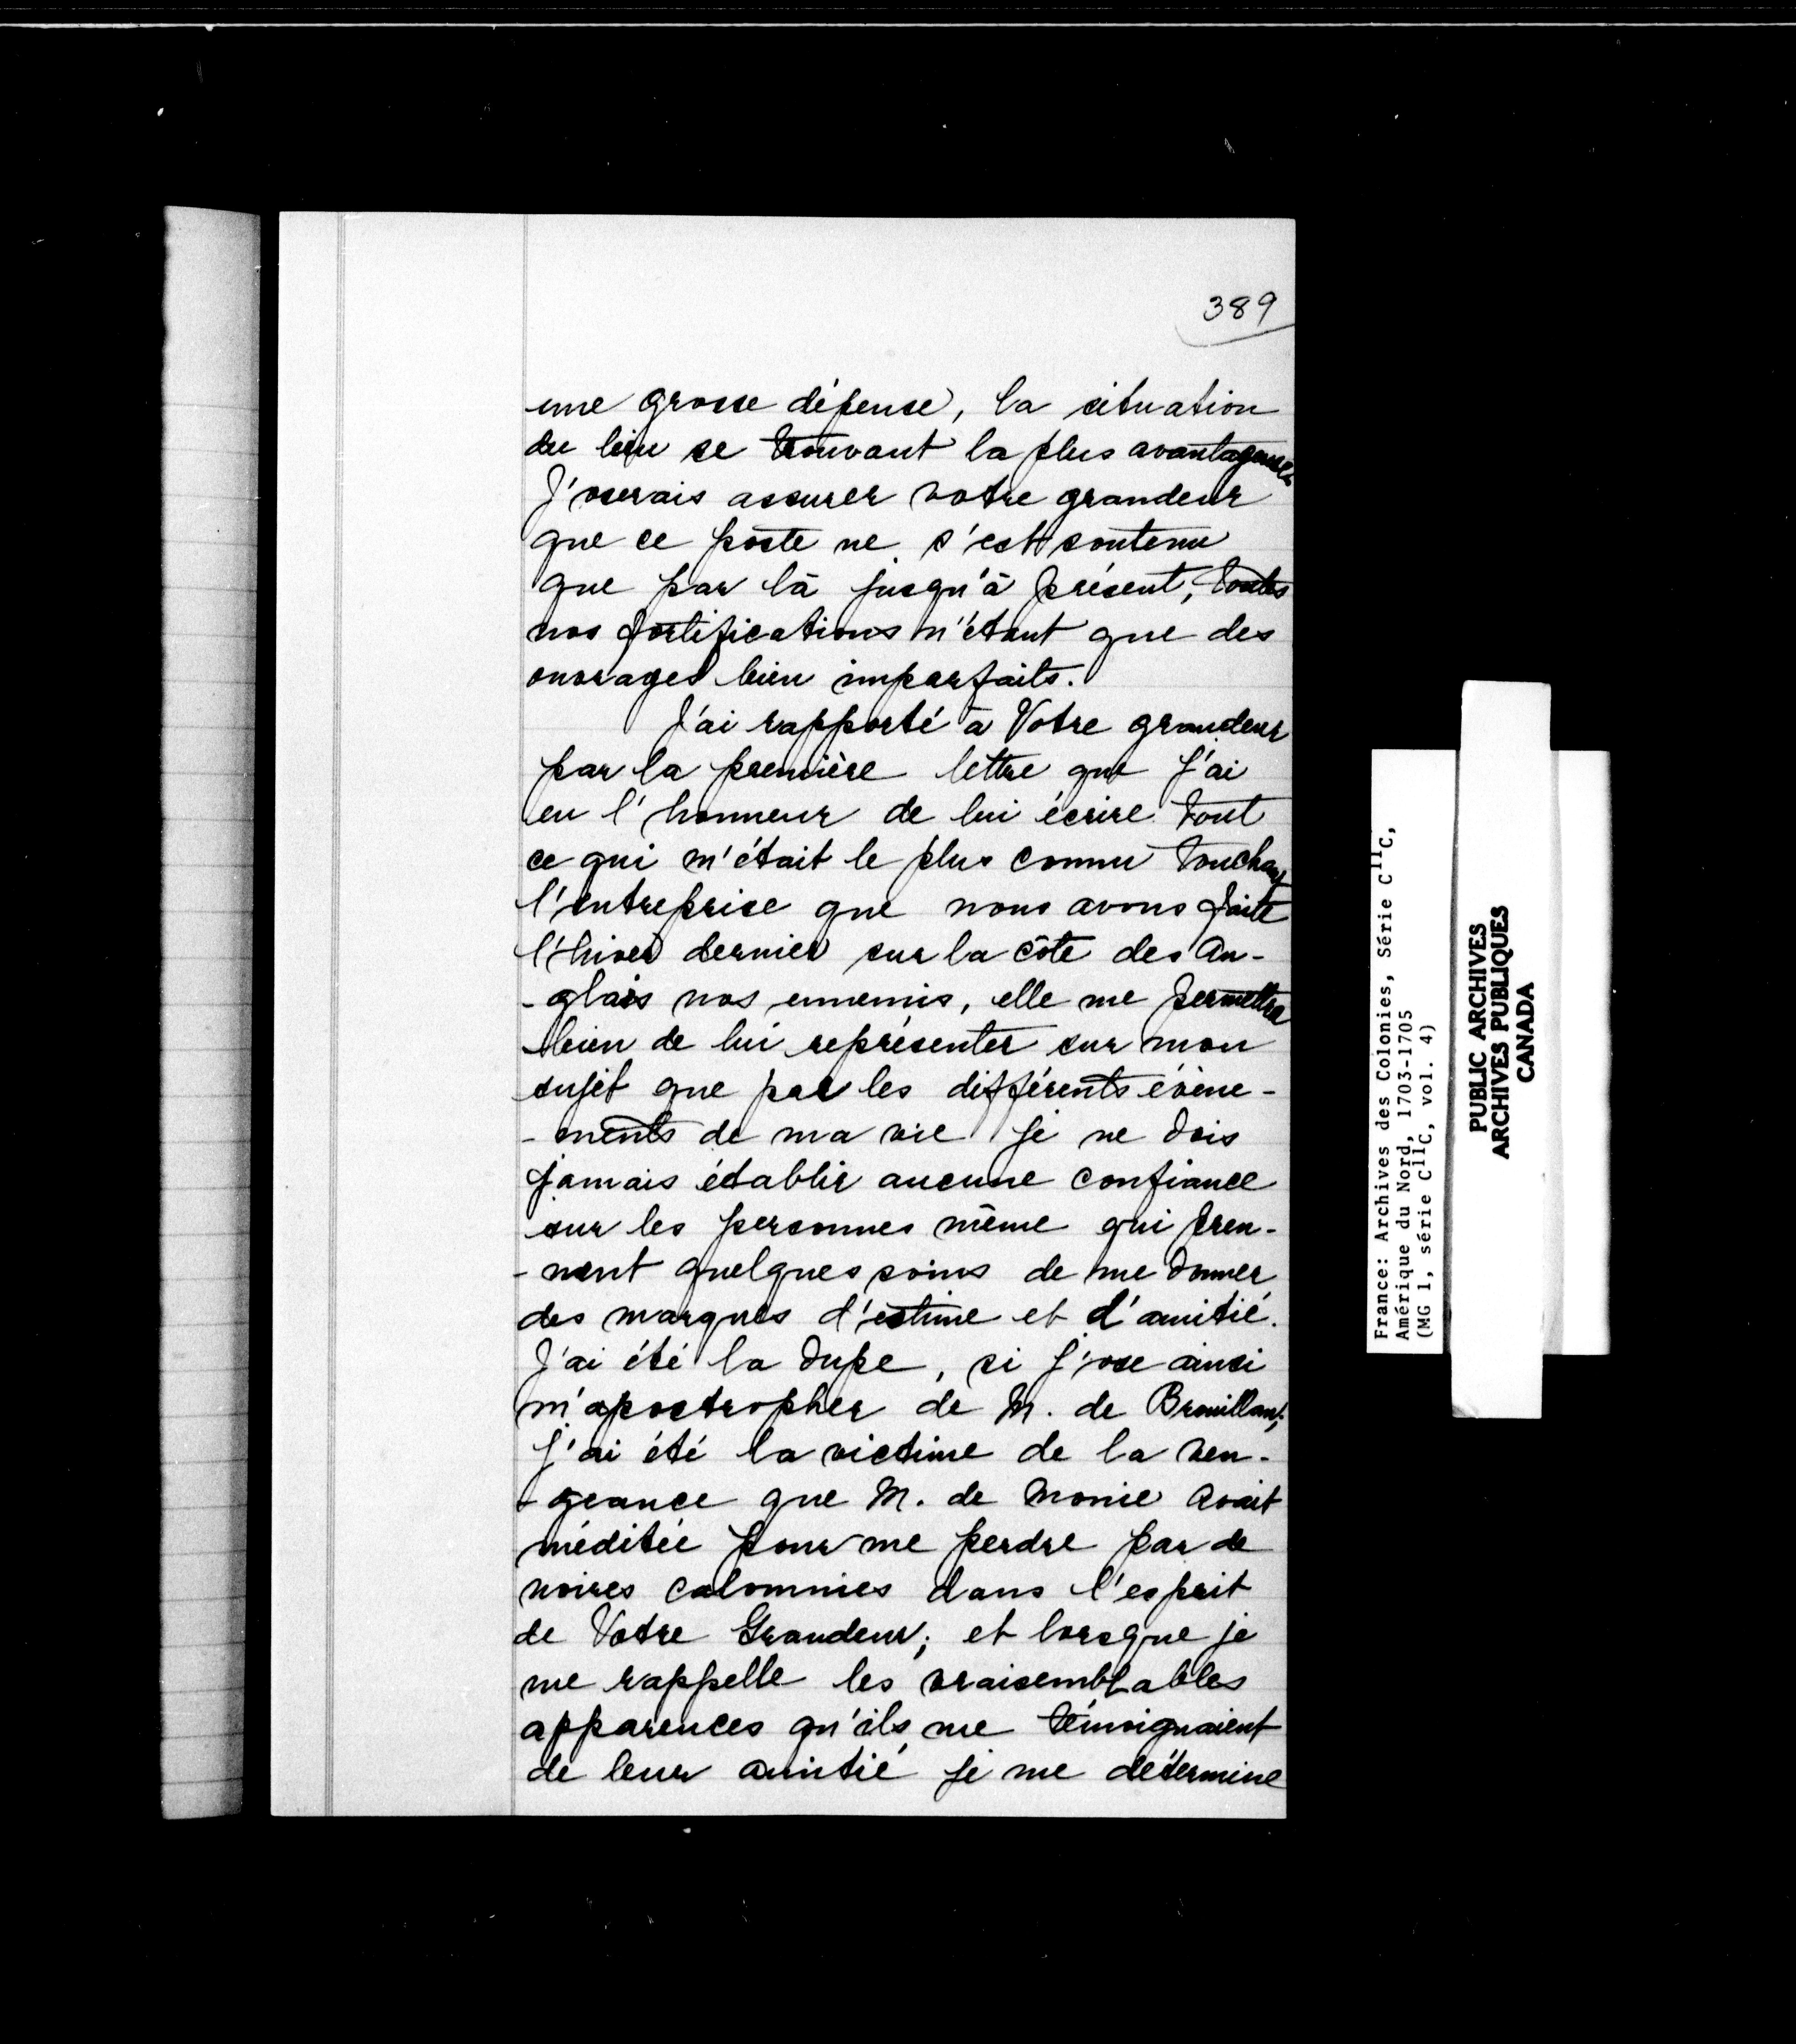 389
une grosse défense, la situation
du lieu se trouvant la plus avantageuse
J'oserais assurer votre grandeur
que ce poste ne s'est soutenu
que par là jusqu'à présent, toutes
nos fortifications n'étant que des
ouvrages bien imparfaits.
J'ai rapporté à Votre grandeur
par la première lettre que j'ai
eu l'honneur de lui écrire tout
ce qui m'était le plus connu touchant
l'entreprise que nous avons faite
l'hiver dernier sur la côte des An-
-glais nos ennemis, elle me permettra
bien de lui représenter sur mon
sujet que par les différents évène-
-ments de ma vie je ne dois
jamais établir aucune confiance
sur les personnes même qui pren-
-nent quelques soins de me donner
des marques d'estime et d'amitié.
J'ai été la dupe, si j'ose ainsi
m'apostropher de M. de Brouillant,
j'ai été la victime de la ven-
-geance que M. de Monie avait
méditée pour me perdre par de
noires calomnies dans l'esprit
de Votre Grandeur; et lorsque je
me rappelle les vraisemblables
apparences qu'ils me témoignaient
de leur amitié je me détermine
France: Archives des Colonies, Série C11C,
Amérique du Nord, 1703-1705
(MG 1, série C11C, vol. 4)
PUBLIC ARCHIVES
ARCHIVES PUBLIQUES
CANADA